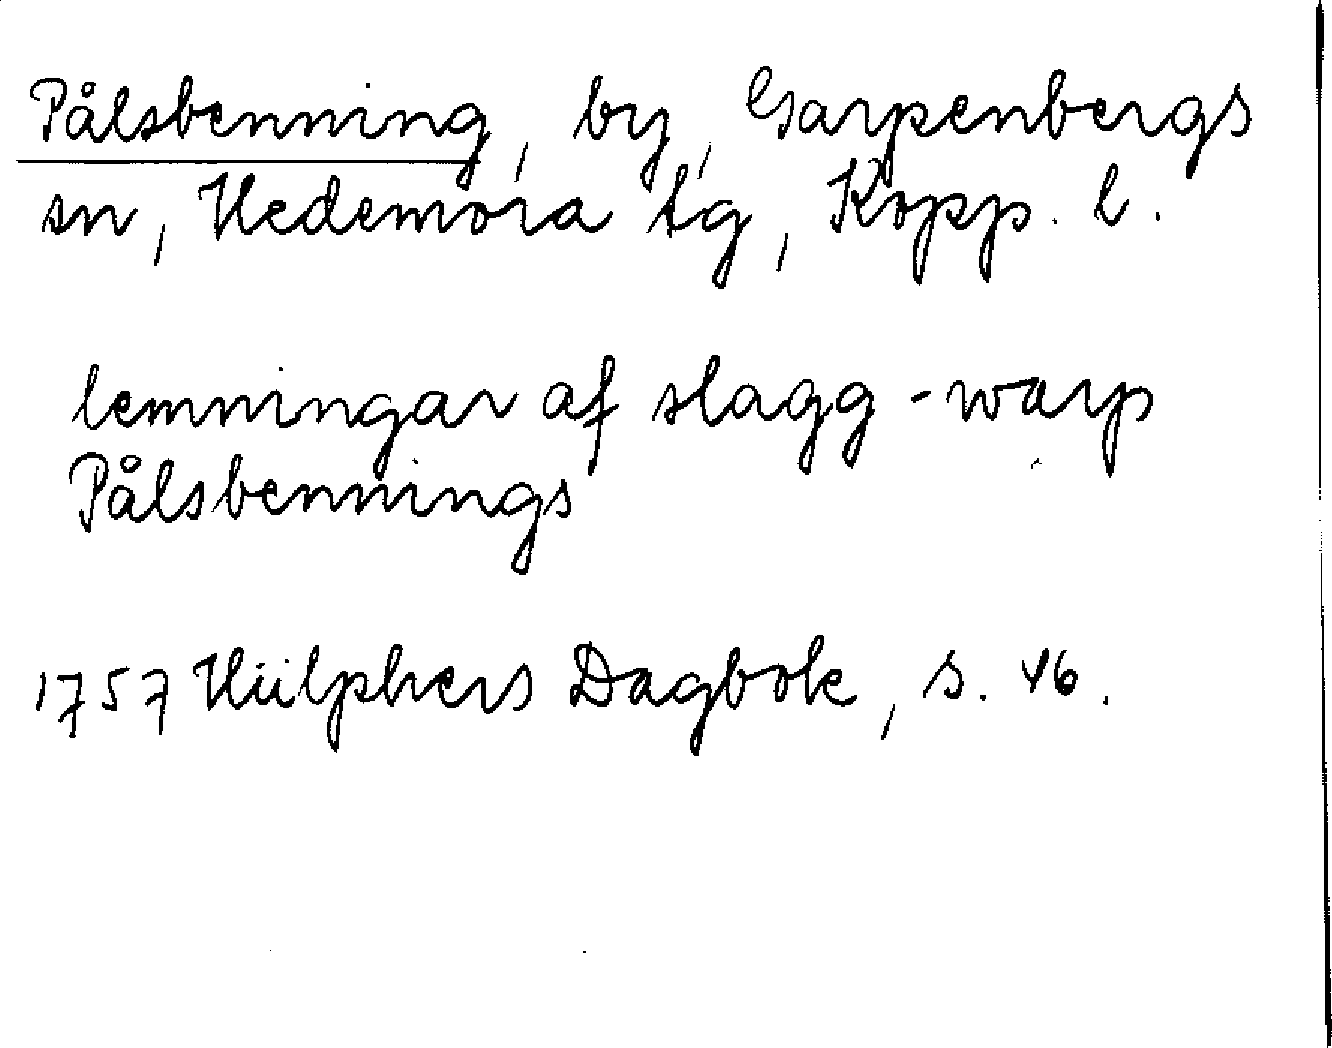 Pålsbenning, by, Garpenbergs
sn, Hedemora tg, Kopp. l.
lemningar af slagg-warp
Pålsbennings
1757 Hülphers Dagbok, s. 46.